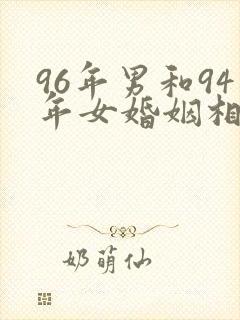 96年男和94
年女婚姻相
奶萌仙